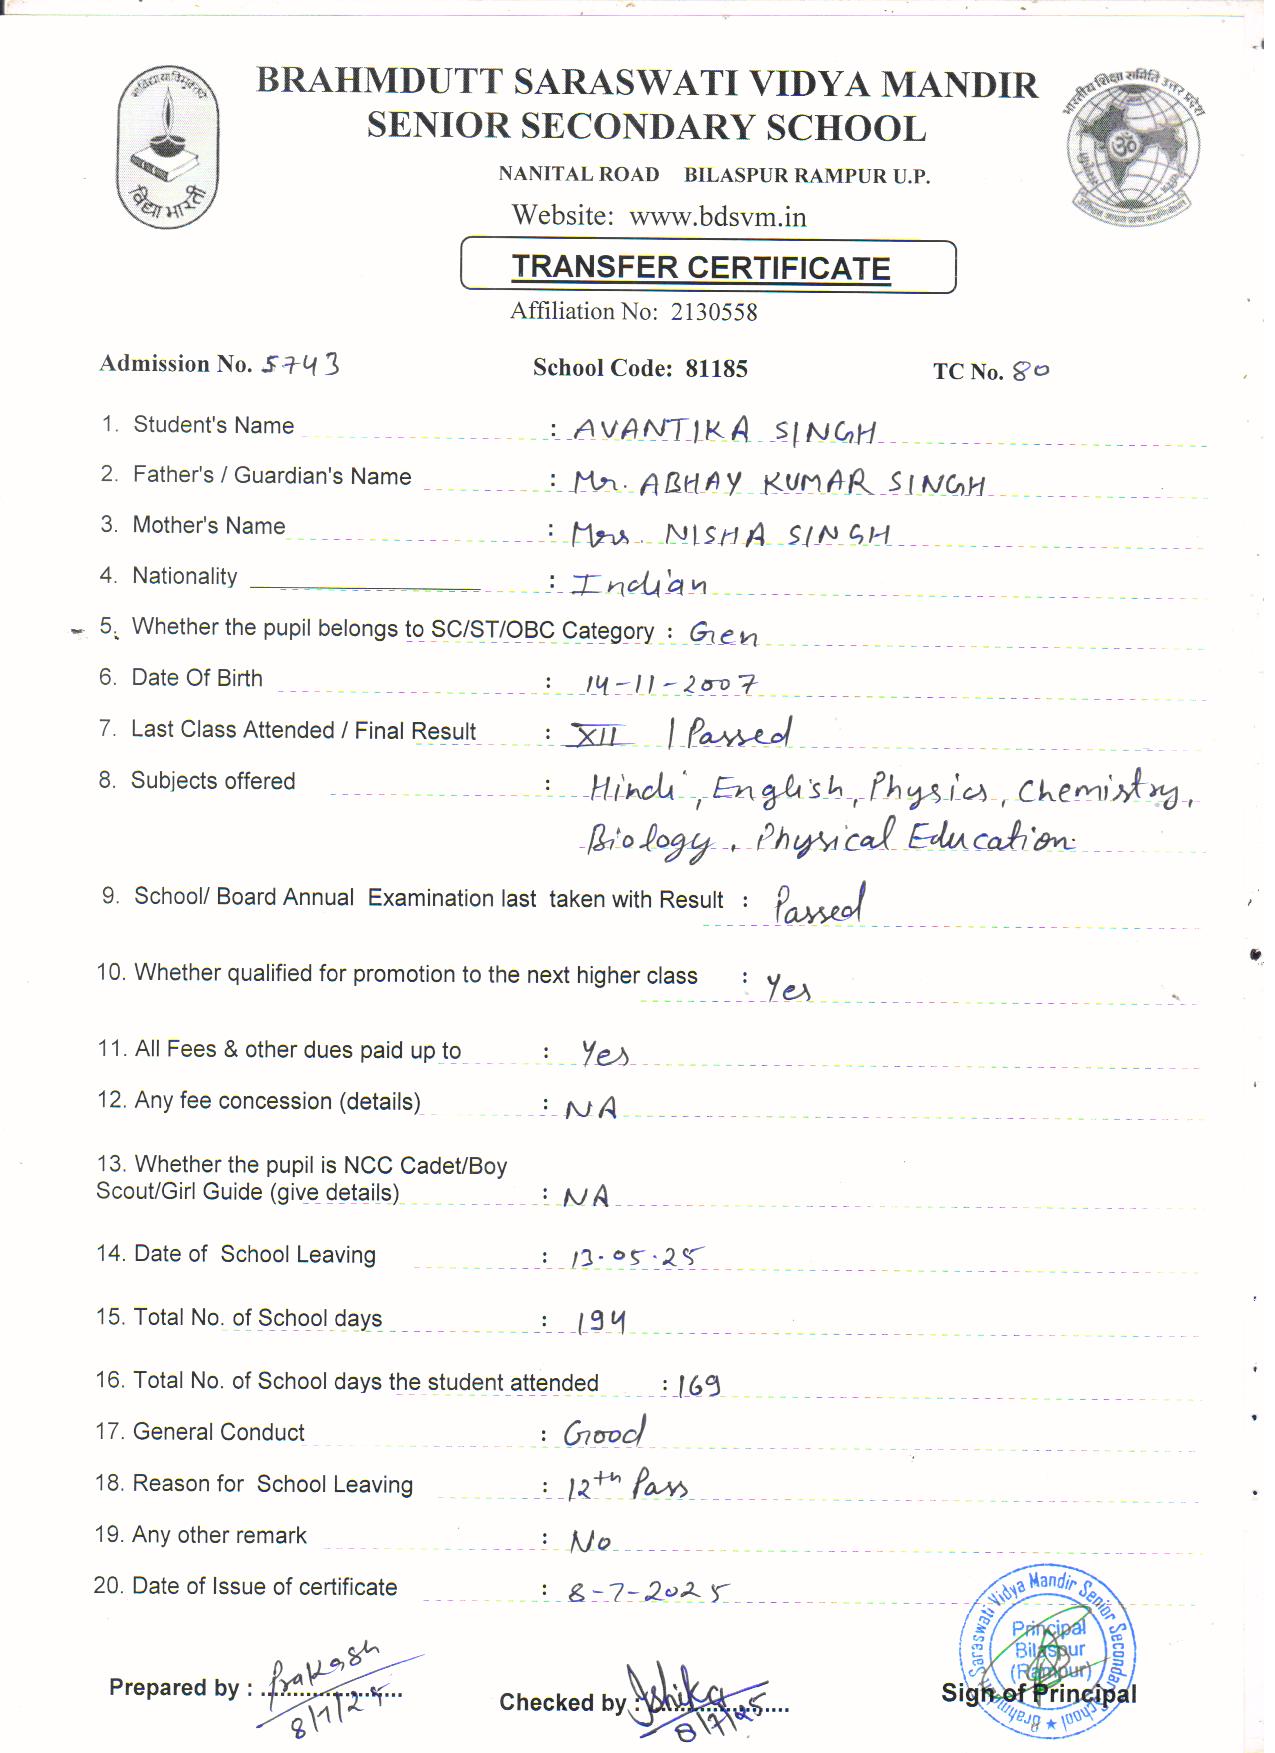 BRAHMDUTT SARASWATI VIDYA MANDIR
SENIOR SECONDARY SCHOOL
NANITAL ROAD BILASPUR RAMPUR U.P.
Website: www.bdsvm.in
विद्या भारती
भारतीय शिक्षा समिति उत्तर प्रदेश
TRANSFER CERTIFICATE
Affiliation No: 2130558
Admission No. 5743 School Code: 81185 TC No. 80
1. Student's Name : AVANTIKA SINGH
2. Father's / Guardian's Name : Mr. ABHAY KUMAR SINGH
3. Mother's Name : Mrs. NISHA SINGH
4. Nationality : Indian
5. Whether the pupil belongs to SC/ST/OBC Category : Gen
6. Date Of Birth : 14-11-2007
7. Last Class Attended / Final Result : XII | Passed
8. Subjects offered : Hindi, English, Physics, Chemistry,
Biology, Physical Education
9. School/ Board Annual Examination last taken with Result : Passed
10. Whether qualified for promotion to the next higher class : Yes
11. All Fees & other dues paid up to : Yes
12. Any fee concession (details) : NA
13. Whether the pupil is NCC Cadet/Boy
Scout/Girl Guide (give details) : NA
14. Date of School Leaving : 13.05.25
15. Total No. of School days : 194
16. Total No. of School days the student attended : 169
17. General Conduct : Good
18. Reason for School Leaving : 12th Pass
19. Any other remark : No
20. Date of Issue of certificate : 8-7-2025
Brahmdutt Saraswati Vidya Mandir Senior Secondary School
Principal
Bilaspur
(Rampur)
Prepared by : Prakash
8/7/25
Checked by : Ishika
8/7/25
Sign of Principal